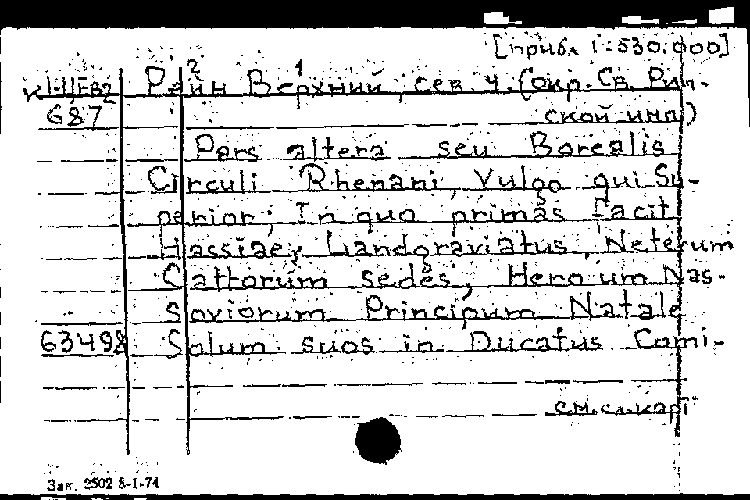 [прибл 1:530.000]
К1-ЦЕв2 Рейн² Верхний¹, сев. ч. (Окр. Св. Рим-
687 ской имп)
Pars altera seu Borealis
Circuli Rhenani, Vulgo qui Su-
perior; In quo primas facit
Hassiae, Landgraviatus, Veterum
Cattorum sedes, Heroum Nas-
soviorum Principum Natale
63498 Solum suos in Ducatus Comi-
см. сл. карт
Зак. 2502 8-1-74